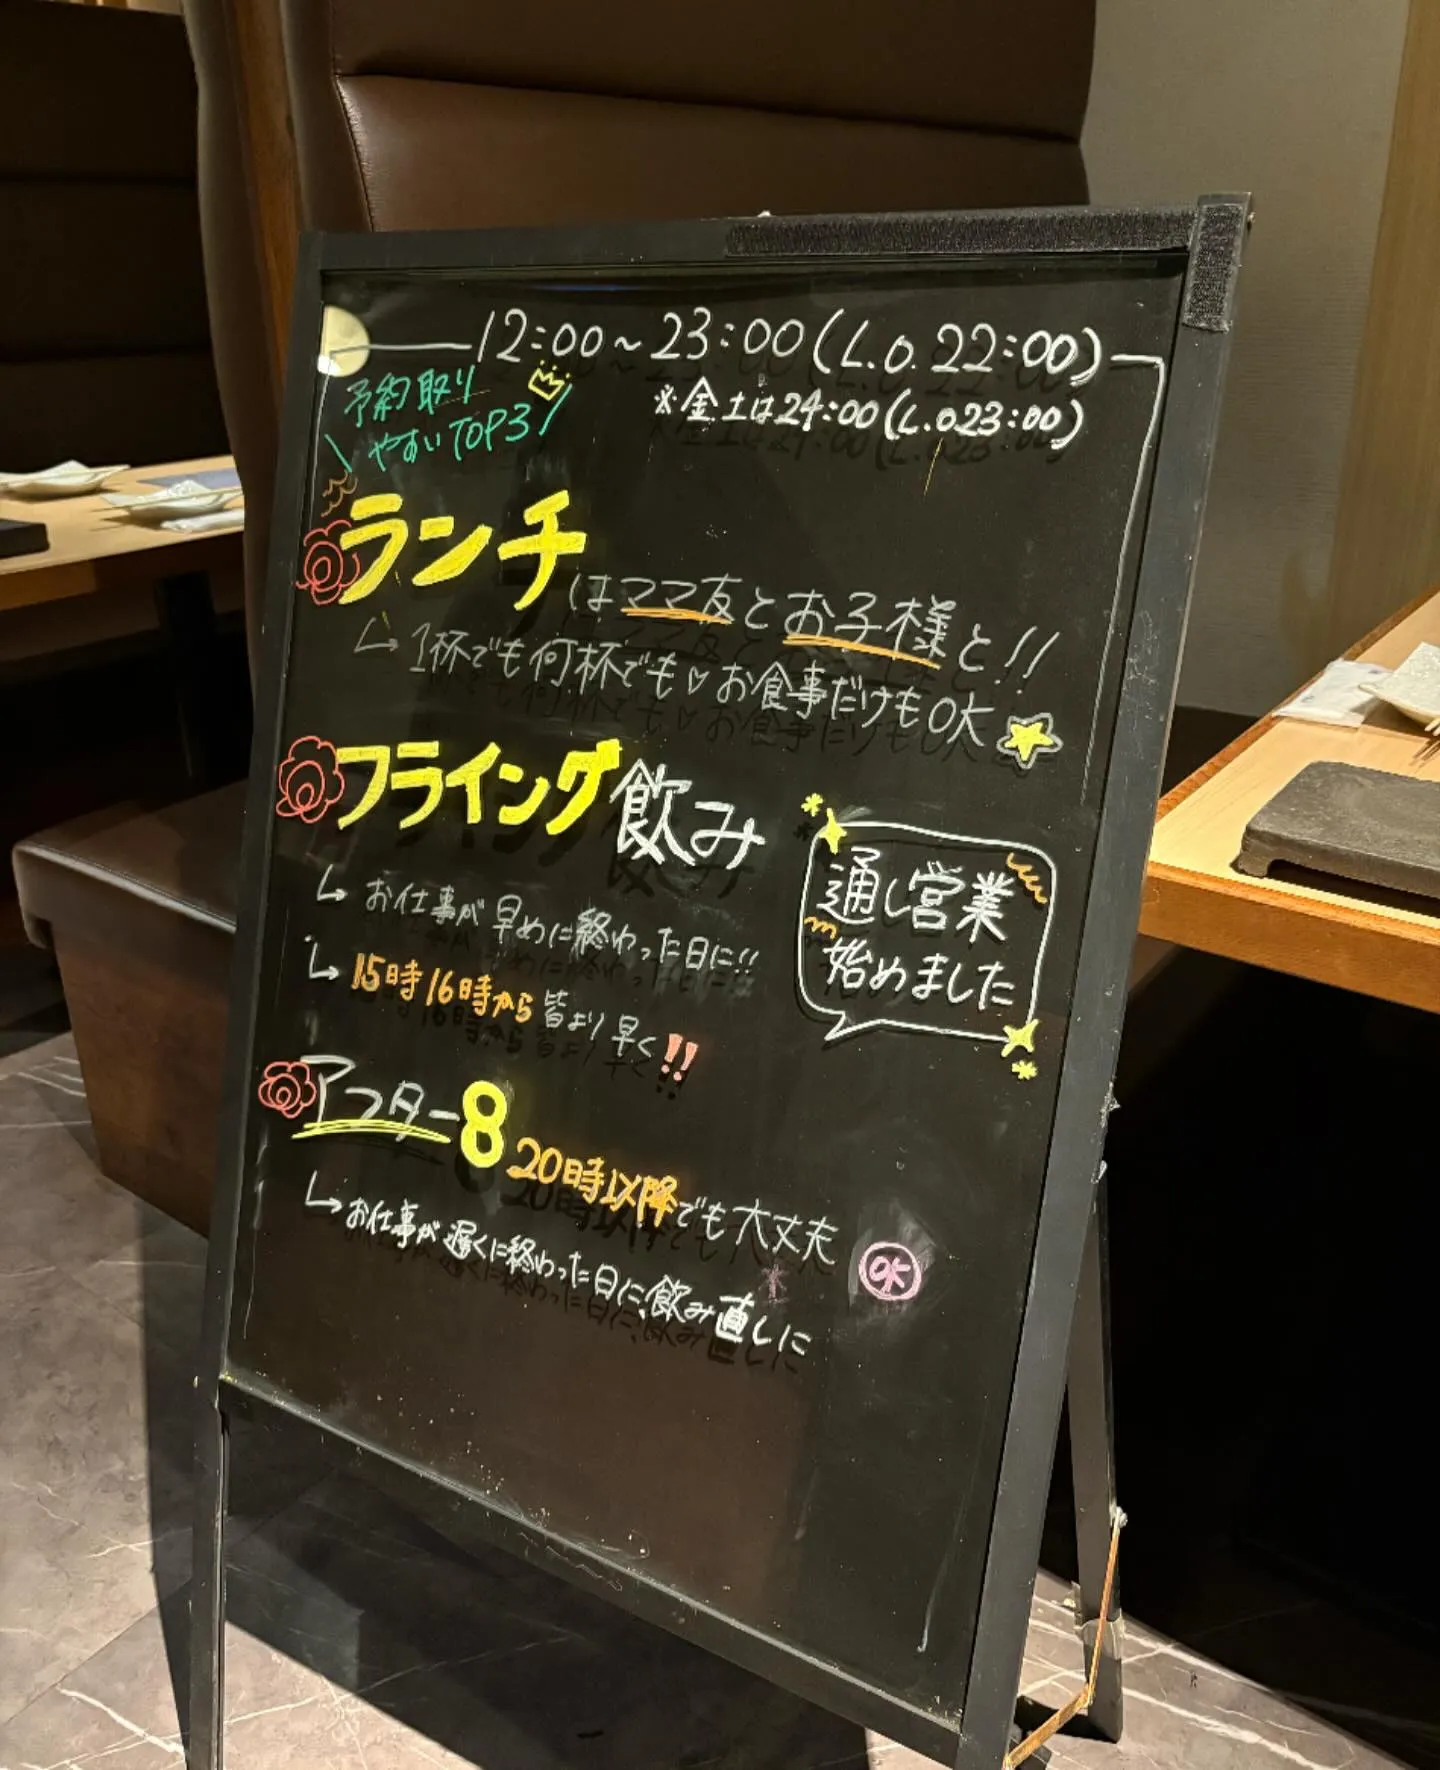 12:00~23:00(L.O.22:00)
※金土は24:00(L.O23:00)
予約取り
やすいTOP3
ランチはママ友とお子様と!!
1杯でも何杯でも♡お食事だけもOK
フライング飲み
お仕事が早めに終わった日に!!
15時16時から皆より早く!!
通し営業
始めました
アフター8 20時以降でも大丈夫 OK
お仕事が遅くに終わった日に、飲み直しに